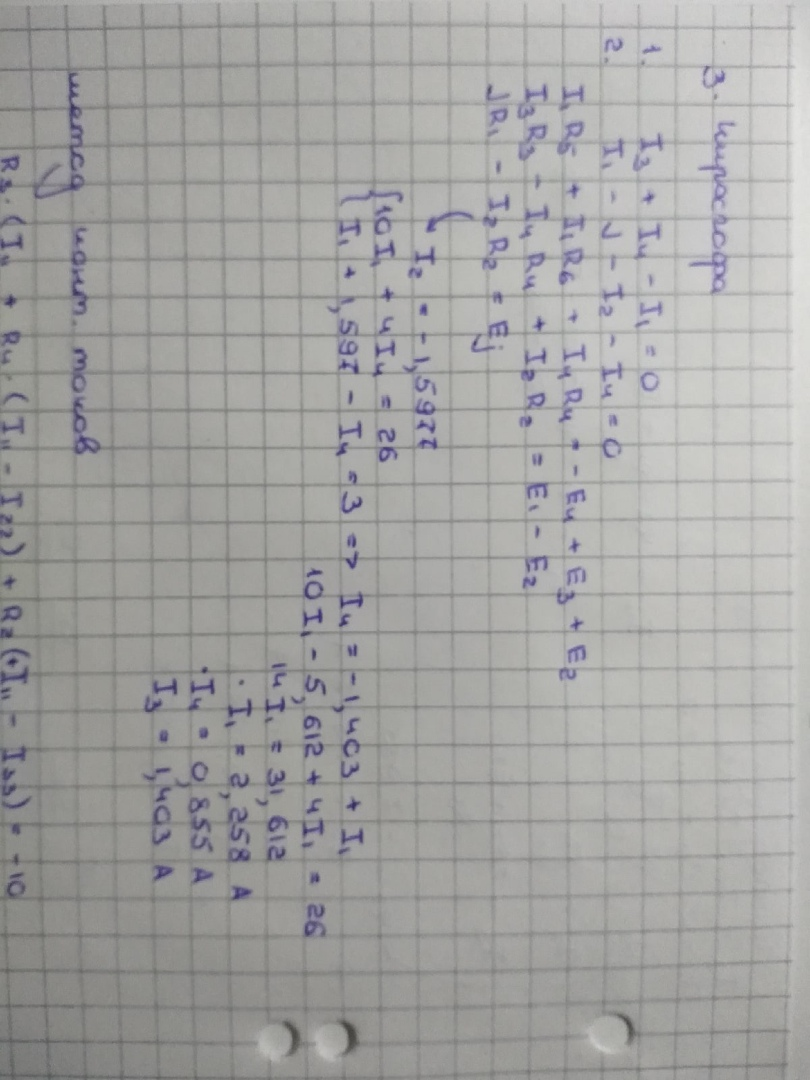 3. Кирхгофа
1. I₃ + I₄ - I₁ = 0
2. I₁ - J - I₂ - I₄ = 0
I₁R₅ + I₁R₆ + I₄R₄ = -E₄ + E₃ + E₂
I₃R₃ - I₄R₄ + I₂R₂ = E₁ - E₂
JR₁ - I₂R₂ = Eⱼ
I₂ = -1,597
10I₁ + 4I₄ = 26
I₁ + 1,597 - I₄ = 3 => I₄ = -1,403 + I₁
10I₁ - 5,612 + 4I₁ = 26
14I₁ = 31,612
· I₁ = 2,258 А
· I₄ = 0,855 А
I₃ = 1,403 А
метод конт. токов
R₃·(I₁₁ + R₄·(I₁₁ - I₂₂) + R₂(+I₁₁ - I₃₃) = -10